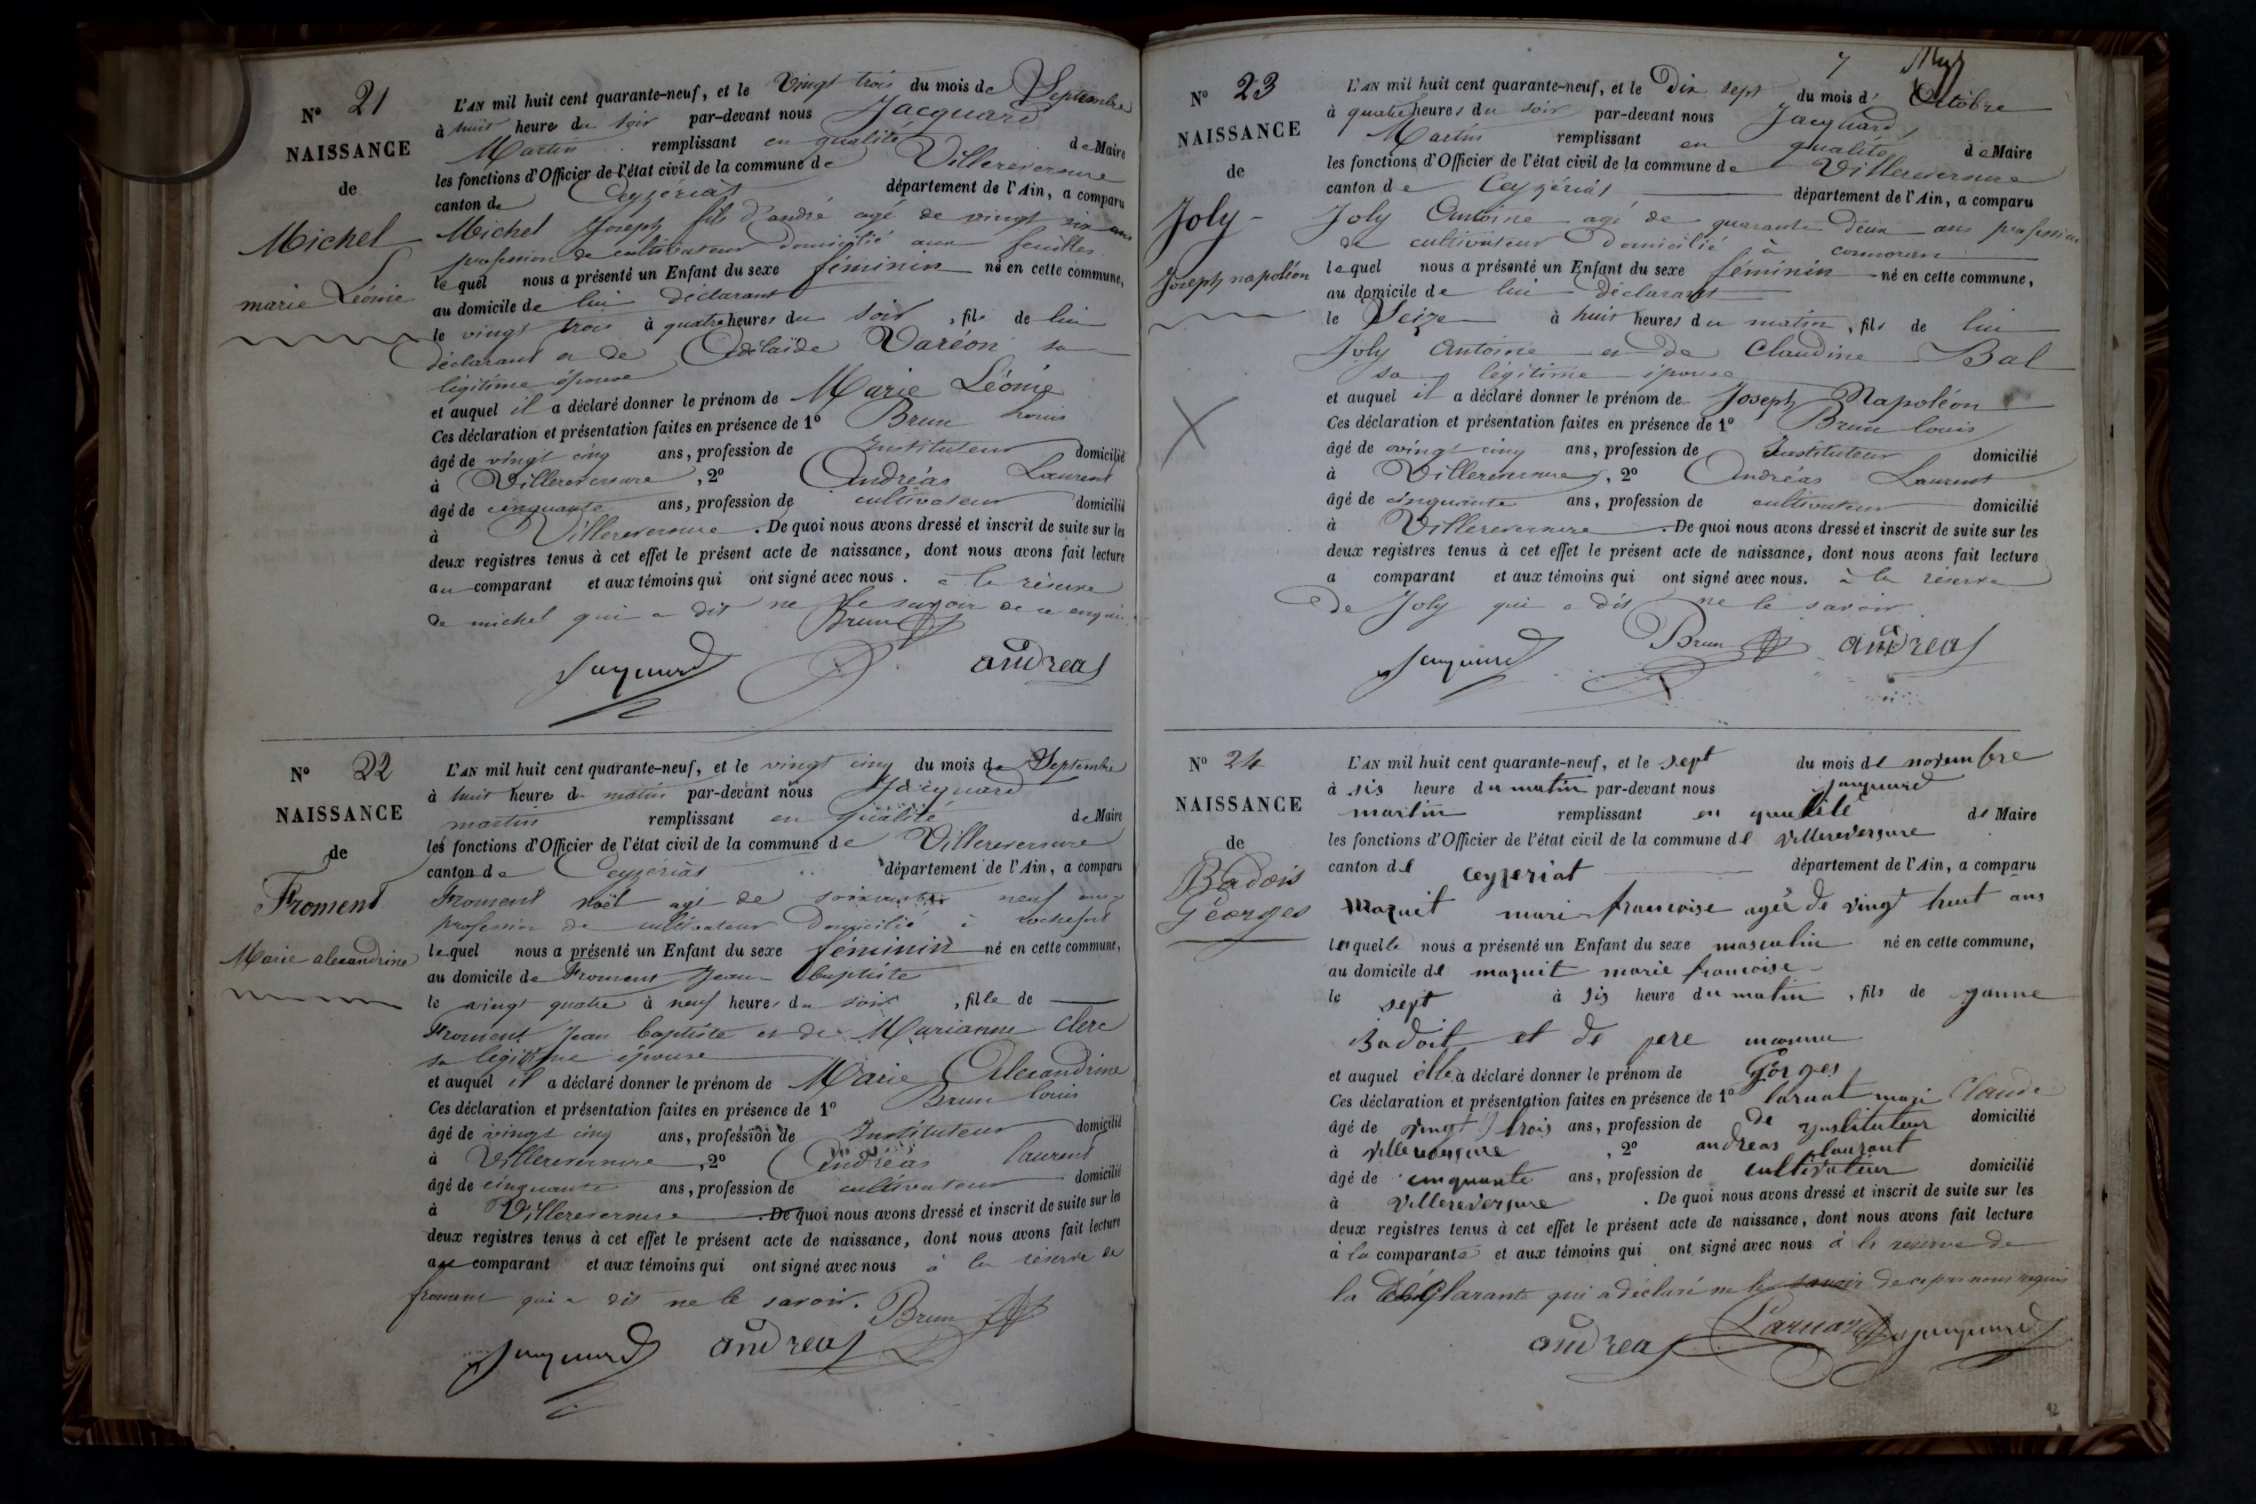 N° 21
NAISSANCE
de
Michel
marie Léonie
L'AN mil huit cent quarante-neuf, et le vingt trois du mois de Septembre
à huit heure du soir par-devant nous Jacquard
Martin remplissant en qualité de Maire
les fonctions d'Officier de l'état civil de la commune de Villereversure
canton de Ceyzériat département de l'Ain, a comparu
Michel Joseph fils d'andré agé de vingt six ans
profession de cultivateur domicilié aux feuilles
lequel nous a présenté un Enfant du sexe féminin né en cette commune,
au domicile de lui déclarant
le vingt trois à quatre heures du soir, fils de lui
déclarant et de Adélaïde Varéon sa
légitime épouse
et auquel il a déclaré donner le prénom de Marie Léonie
Ces déclaration et présentation faites en présence de 1° Brun Louis
âgé de vingt cinq ans, profession de Instituteur domicilié
à Villereversure, 2° Andréas Laurent
âgé de cinquante ans, profession de cultivateur domicilié
à Villereversure. De quoi nous avons dressé et inscrit de suite sur les
deux registres tenus à cet effet le présent acte de naissance, dont nous avons fait lecture
au comparant et aux témoins qui ont signé avec nous. à la réserve
de michel qui a dit ne le savoir de ce enquis
Brun
Jacquard andreas
N° 22
NAISSANCE
de
Froment
Marie alexandrine
L'AN mil huit cent quarante-neuf, et le vingt cinq du mois de Septembre
à huit heures du matin par-devant nous Jacquard
martin remplissant en qualité de Maire
les fonctions d'Officier de l'état civil de la commune de Villereversure
canton de Ceyzériat département de l'Ain, a comparu
Froment Noël agé de soixante neuf ans
profession de cultivateur domicilié à rochefort
lequel nous a présenté un Enfant du sexe féminin né en cette commune,
au domicile de Froment Jean baptiste
le vingt quatre à neuf heures du soir, fille de
Froment Jean baptiste et de Marianne Clerc
sa légitime épouse
et auquel il a déclaré donner le prénom de Marie Alexandrine
Ces déclaration et présentation faites en présence de 1° Brun louis
âgé de vingt cinq ans, profession de Instituteur domicilié
à Villereversure, 2° Andréas laurent
âgé de cinquante ans, profession de cultivateur domicilié
à Villereversure. De quoi nous avons dressé et inscrit de suite sur les
deux registres tenus à cet effet le présent acte de naissance, dont nous avons fait lecture
au comparant et aux témoins qui ont signé avec nous à la réserve de
froment qui a dit ne le savoir. Brun
Jacquard andreas
7
N° 23
NAISSANCE
de
Joly
Joseph napoléon
L'AN mil huit cent quarante-neuf, et le Dix sept du mois d' Octobre
à quatre heures du soir par-devant nous Jacquard
Martin remplissant en qualité de Maire
les fonctions d'Officier de l'état civil de la commune de Villereversure
canton de Ceyzériat département de l'Ain, a comparu
Joly Antoine agé de quarante deux ans profession
de cultivateur domicilié à cormoran
lequel nous a présenté un Enfant du sexe féminin né en cette commune,
au domicile de lui déclarant
le Seize à huit heures du matin, fils de lui
Joly Antoine et de Claudine Bal
sa légitime épouse
et auquel il a déclaré donner le prénom de Joseph Napoléon
Ces déclaration et présentation faites en présence de 1° Brun louis
âgé de vingt cinq ans, profession de Instituteur domicilié
à Villereversure, 2° Andréas Laurent
âgé de cinquante ans, profession de cultivateur domicilié
à Villereversure. De quoi nous avons dressé et inscrit de suite sur les
deux registres tenus à cet effet le présent acte de naissance, dont nous avons fait lecture
a comparant et aux témoins qui ont signé avec nous. à la reserve
de Joly qui a dit ne le savoir
Jacquard Brun andreas
N° 24
NAISSANCE
de
Badois
Georges
L'AN mil huit cent quarante-neuf, et le sept du mois de novembre
à sis heure du matin par-devant nous jacquard
martin remplissant en qualité de Maire
les fonctions d'Officier de l'état civil de la commune de villereversure
canton de ceyzeriat département de l'Ain, a comparu
Mazuit marie francoise agée de vingt huit ans
laquelle nous a présenté un Enfant du sexe masculin né en cette commune,
au domicile de mazuit marie francoise
le sept à sis heure du matin, fils de janne
Badoit et de pere inconnu
et auquel elle à déclaré donner le prénom de Gorges
Ces déclaration et présentation faites en présence de 1° Claude
âgé de vingt trois ans, profession de de ynstituteur domicilié
à villereversure, 2° andreas laurant
âgé de cinquante ans, profession de cultivateur domicilié
à villereversure. De quoi nous avons dressé et inscrit de suite sur les
deux registres tenus à cet effet le présent acte de naissance, dont nous avons fait lecture
à la comparante et aux témoins qui ont signé avec nous à la réserve de
la déclarante qui a déclaré ne le savoir de ce par nous requis
andreas jacquard
42